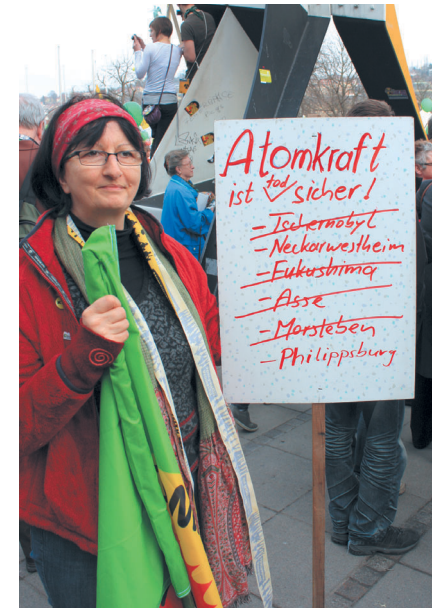 Atomkraft
ist tod sicher!
- Tschernobyl
- Neckarwestheim
- Fukushima
- Asse
- Morsleben
- Philippsburg